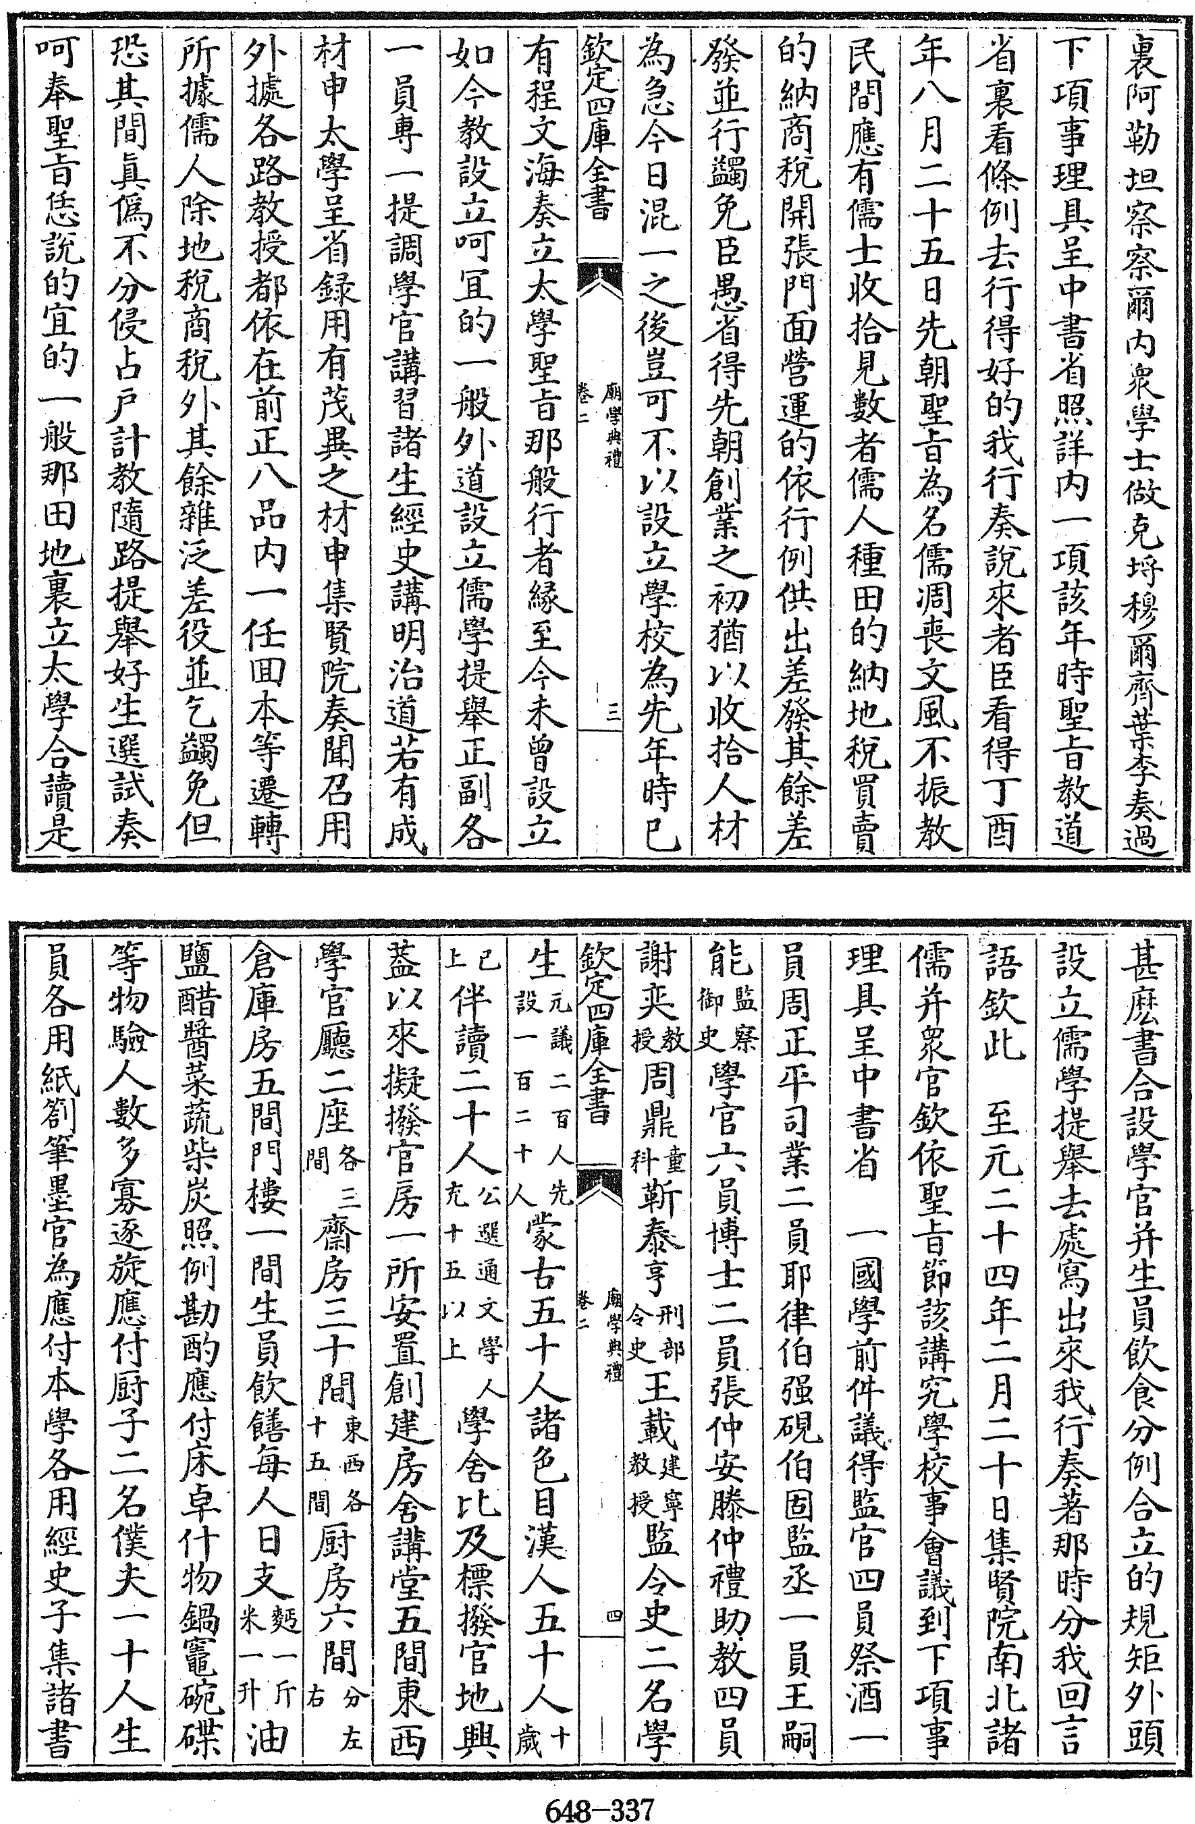 裏阿勒坦察察爾内衆學士做克埒穆爾齊葉李奏過
下項事理具呈中書省照詳内一項該年時聖旨教道
省裏看條例去行得好的我行奏說來者臣看得丁酉
年八月二十五日先朝聖旨為名儒凋喪文風不振教
民間應有儒士收拾見數者儒人種田的納地稅買賣
的納商稅開張門面營運的依行例供出差發其餘差
發並行蠲免臣愚省得先朝創業之初猶以收拾人材
為急今日混一之後豈可不以設立學校為先年時已
欽定四庫全書
廟學典禮
卷二
三
有程文海奏立太學聖旨那般行者緣至今未曾設立
如今教設立呵冝的一般外道設立儒學提舉正副各
一員專一提調學官講習諸生經史講明治道若有成
材申太學呈省録用有茂異之材申集賢院奏聞召用
外據各路教授都依在前正八品内一任回本等遷轉
所據儒人除地稅商稅外其餘雜泛差役並乞蠲免但
恐其間真偽不分侵占戸計教隨路提舉好生選試奏
呵奉聖旨恁說的宜的一般那田地裏立太學合讀是
甚麽書合設學官并生員飲食分例合立的規矩外頭
設立儒學提舉去處寫出來我行奏著那時分我回言
語欽此　至元二十四年二月二十日集賢院南北諸
儒并衆官欽依聖旨節該講究學校事會議到下項事
理具呈中書省　一國學前件議得監官四員祭酒一
員周正平司業二員耶律伯强硯伯固監丞一員王嗣
能監察御史學官六員博士二員張仲安滕仲禮助教四員
謝奕教授周鼎童科靳泰亨刑部令史王載建寧教授監令史二名學
欽定四庫全書
廟學典禮
卷二
四
生元議二百人先設一百二十人蒙古五十人諸色目漢人五十人十歲
已上伴讀二十人公選通文學人充十五以上學舍比及標撥官地興
葢以來擬撥官房一所安置創建房舍講堂五間東西
學官廳二座各三間齋房三十間東西各十五間厨房六間分左右
倉庫房五間門樓一間生員飲饍每人日支麪一斤米一升油
鹽醋醬菜蔬柴炭照例勘酌應付床卓什物鍋竈碗碟
等物驗人數多寡逐旋應付厨子二名僕夫一十人生
員各用紙劄筆墨官為應付本學各用經史子集諸書
648-337